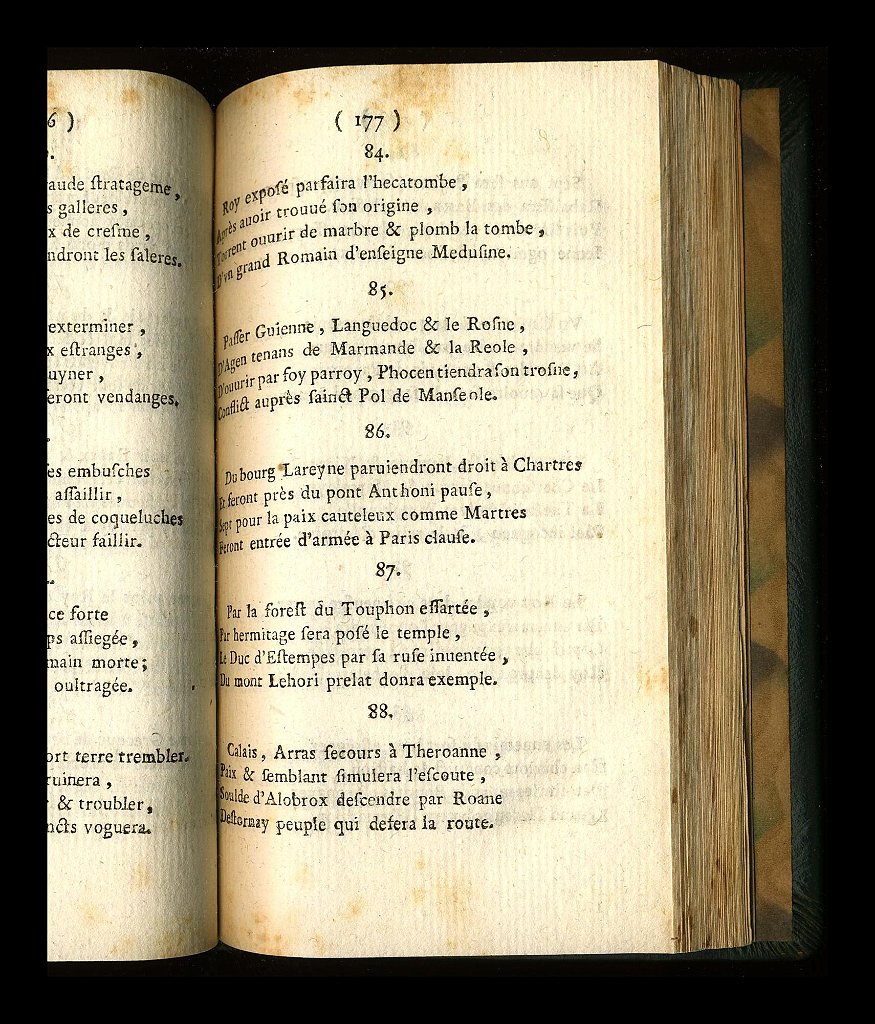 6 )
.
aude ſtratageme,
s galleres,
x de creſme,
ndront les ſaleres.
exterminer,
x eſtranges,
uyner,
eront vendanges.
.
es embuſches
aſſaillir,
es de coqueluches
cteur faillir.
ce forte
ps aſſiegée,
main morte;
oultragée.
ort terre trembler.
ruinera,
& troubler,
ncts voguera.
( 177 )
84.
Roy expoſé parfaira l'hecatombe,
Après auoir trouué ſon origine,
Torrent ouurir de marbre & plomb la tombe,
D'vn grand Romain d'enſeigne Meduſine.
85.
Paſſer Guienne, Languedoc & le Roſne,
D'Agen tenans de Marmande & la Reole,
D'ouurir par foy parroy, Phocen tiendra ſon troſne,
Conflict auprès ſainct Pol de Manſeole.
86.
Du bourg Lareyne paruiendront droit à Chartres
Et feront près du pont Anthoni pauſe,
Sept pour la paix cauteleux comme Martres
Feront entrée d'armée à Paris clauſe.
87.
Par la foreſt du Touphon eſſartée,
Par hermitage ſera poſé le temple,
Le Duc d'Eſtempes par ſa ruſe inuentée,
Du mont Lehori prelat donra exemple.
88.
Calais, Arras ſecours à Theroanne,
Paix & ſemblant ſimulera l'eſcoute,
Soulde d'Alobrox deſcendre par Roane
Deſtornay peuple qui defera la route.